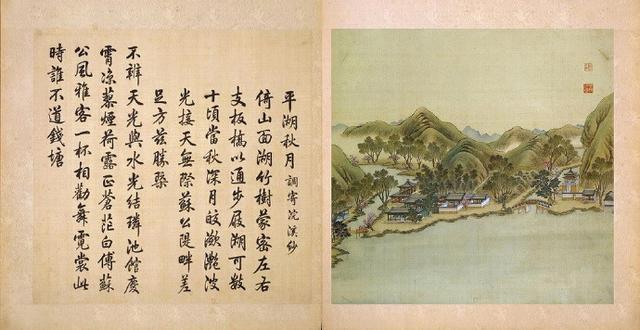 平湖秋月 調寄浣溪紗
倚山面湖竹樹蒙密左右
支板橋以通步屧湖可數
十頃當秋深月皎潋灧波
光接天無際蘇公堤畔差
足方茲勝槩
不辨天光與水光結璘池館慶
霄涼蓼煙荷露正蒼茫白傅蘇
公風雅客一杯相勸舞霓裳此
時誰不道錢塘